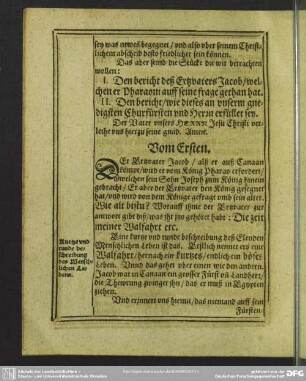 sey was uns widers begegnet / und also uber seinem Christ-
lichem abschied desto friedlicher sein können.
Das aber seind die Stücke die wir betrachten
wollen:
I. Den bericht deß Ertzvaters Jacob / wel-
chen er Pharaoni auff seine frage gethan hat.
II. Den bericht / wie dieses an unserm gne-
digsten Churfürsten und Herrn erfüllet sey.
Der Vater unsers HERRN Jesu Christi ver-
leihe uns hierzu seine gnad. Amen.
Vom Ersten.
DEr Ertzvater Jacob / alß er auß Canaan
kömpt / wird er vom König Pharao erfordert /
welchen sein Sohn Joseph zum König hinein
gebracht / Er aber der Ertzvater den König gesegnet
hat / und wird von dem Könige gefragt umb sein alter.
Wie alt bistu? Worauff ihme der Ertzvater zur
antwort gibt diß / was ihr itzo gehöret habt: Die zeit
meiner Walfahrt etc.
Kurtze und
runde be-
schreibung
des Mensch-
lichen Le-
bens.
Eine kurtze und runde beschreibung deß Elenden
Menschlichen Leben ist das. Erstlich nennet ers eine
Walfahrt / hernach ein kurtzes / endlich ein böses
Leben. Unnd das gehet uber einen wie den andern.
Jacob war in Canaan ein grosser Fürst an Landherr /
die Thewrung zwinget ihn / das er muß in Egypten
ziehen.
Und erinnert uns hiemit / das niemand auff sein
Fürsten-